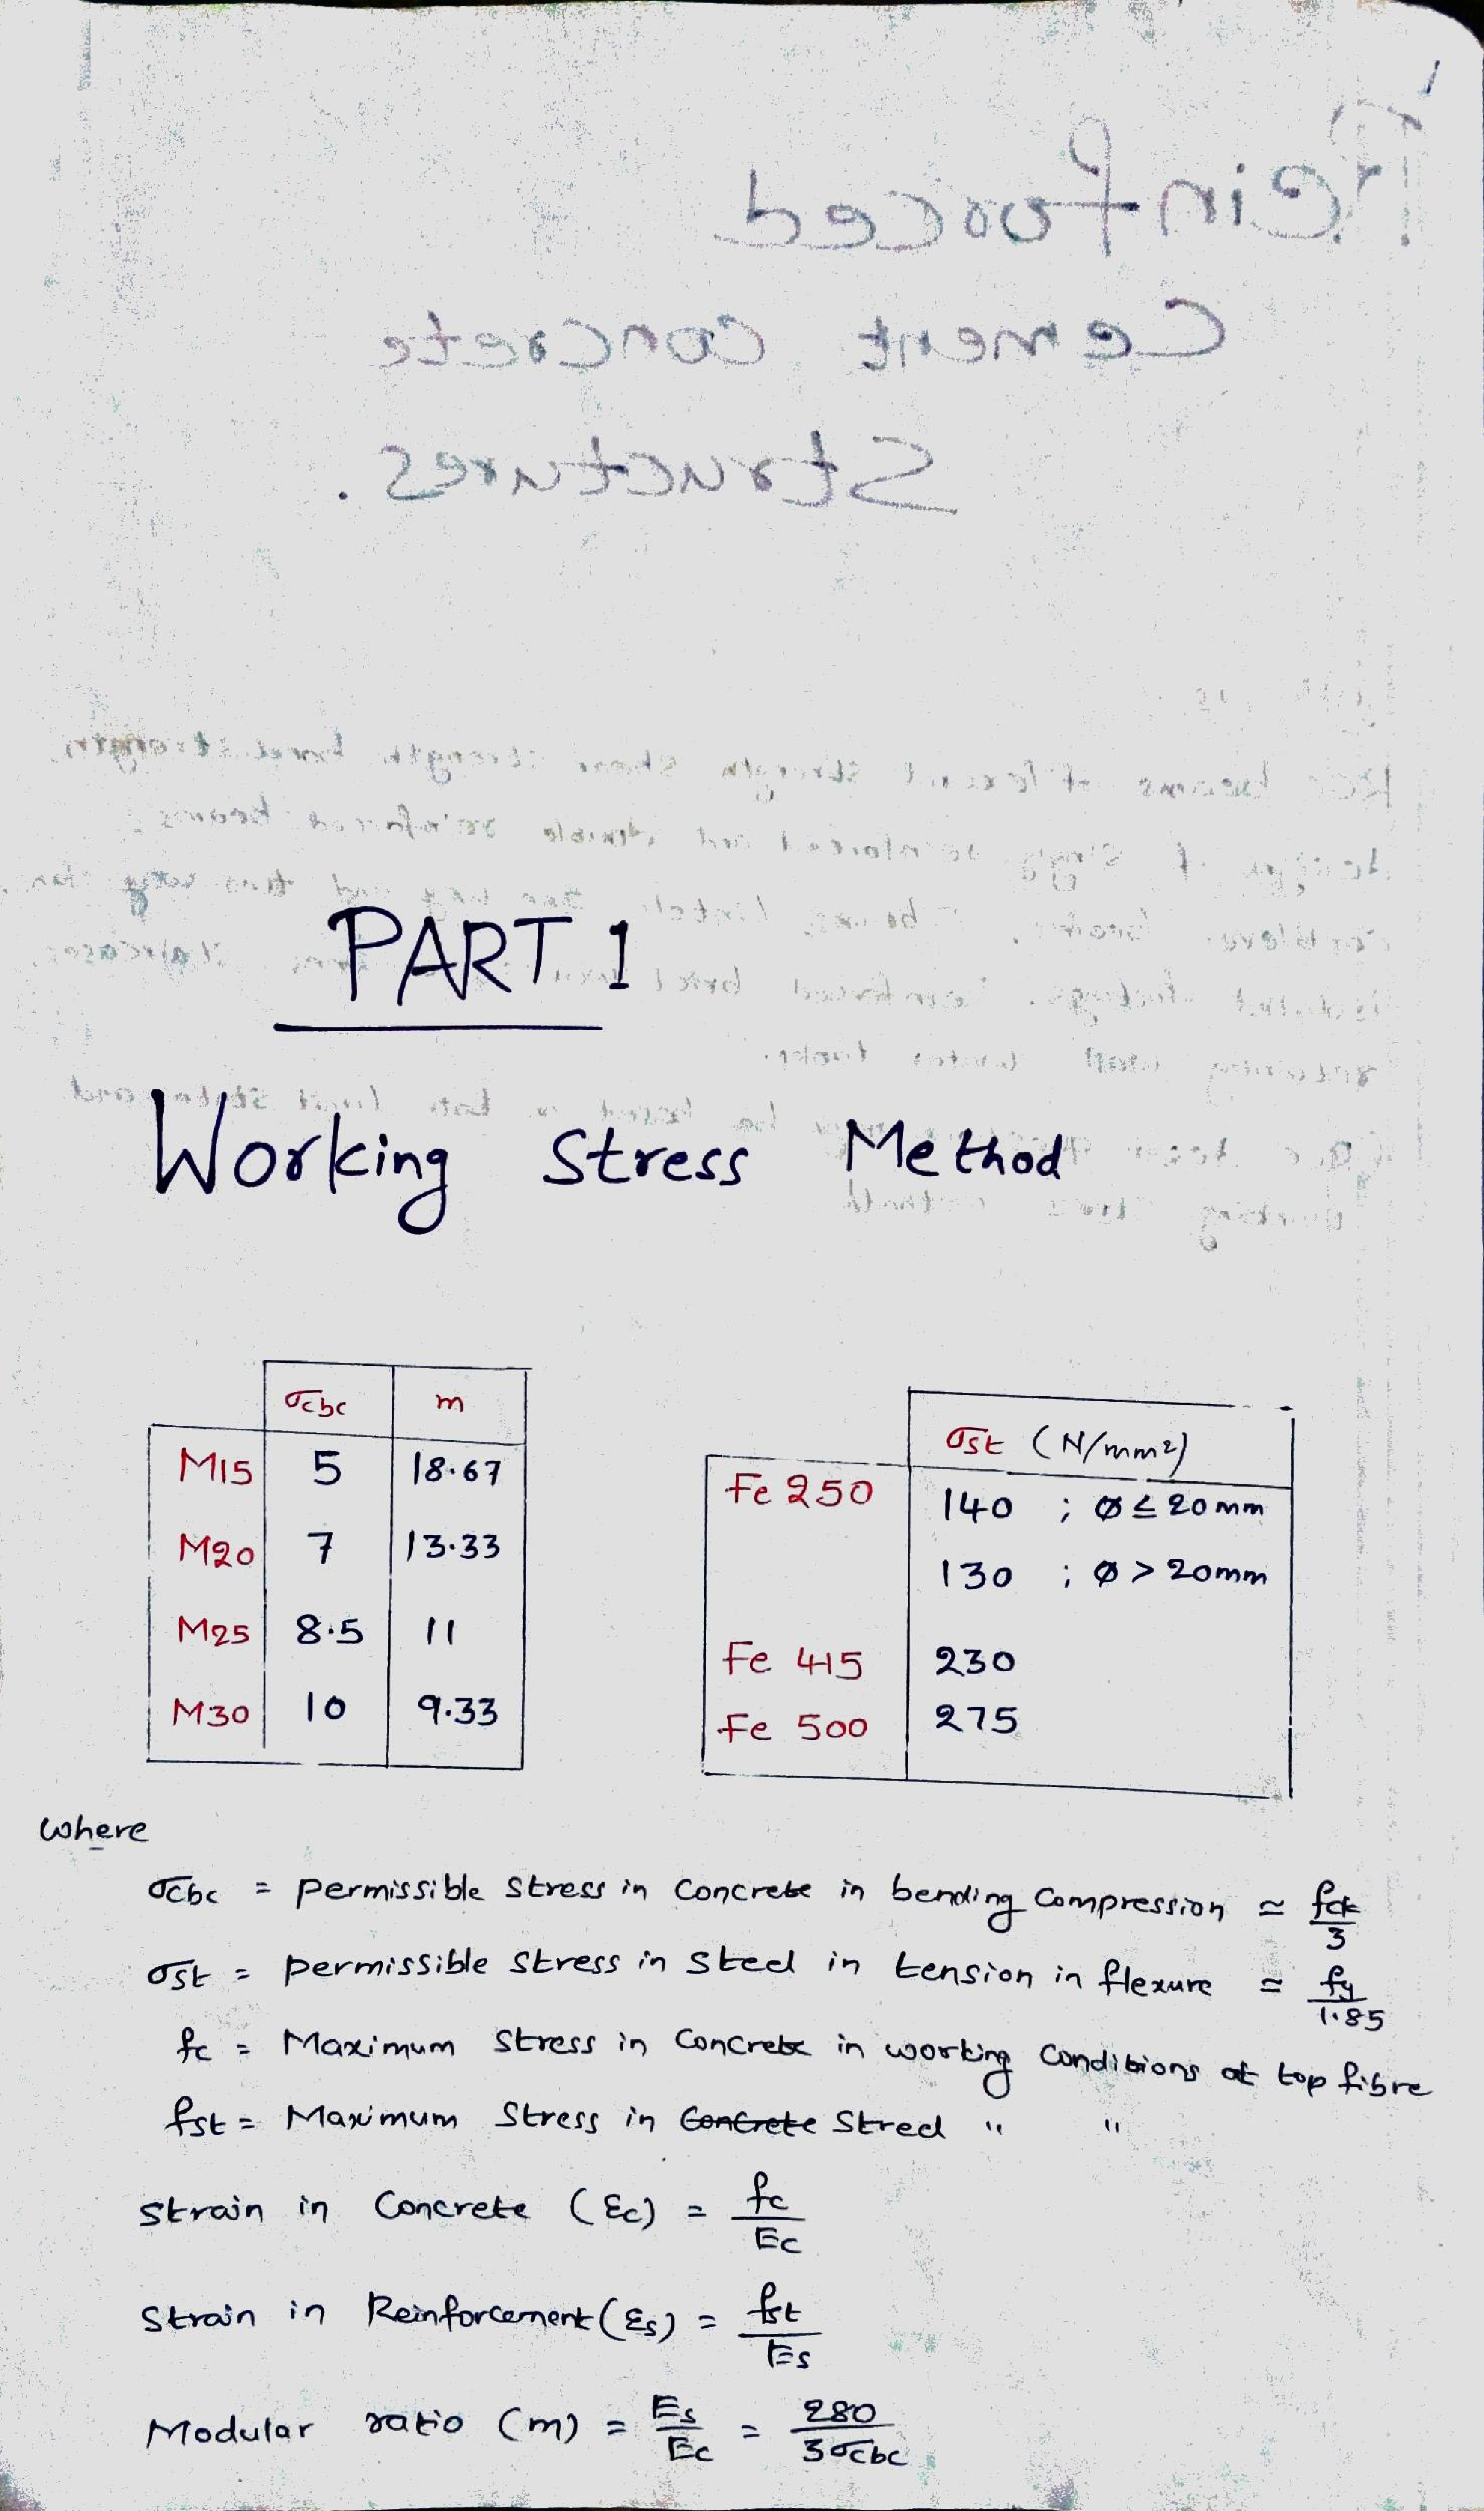 Reinforced
Cement Concrete
Structures.
PART 1
Working Stress Method
σcbc m
M15 5 18.67
M20 7 13.33
M25 8.5 11
M30 10 9.33
σst (N/mm²)
Fe 250 140 ; Ø ≤ 20 mm
130 ; Ø > 20mm
Fe 415 230
Fe 500 275
where
σcbc = permissible stress in concrete in bending compression ≃ fck/3
σst = permissible stress in steel in tension in flexure ≃ fy/1.85
fc = Maximum stress in concrete in working conditions at top fibre
fst = Maximum stress in Concrete Streel " "
strain in concrete (εc) = fc/Ec
strain in Reinforcement (εs) = fst/Es
Modular ratio (m) = Es/Ec = 280/3σcbc